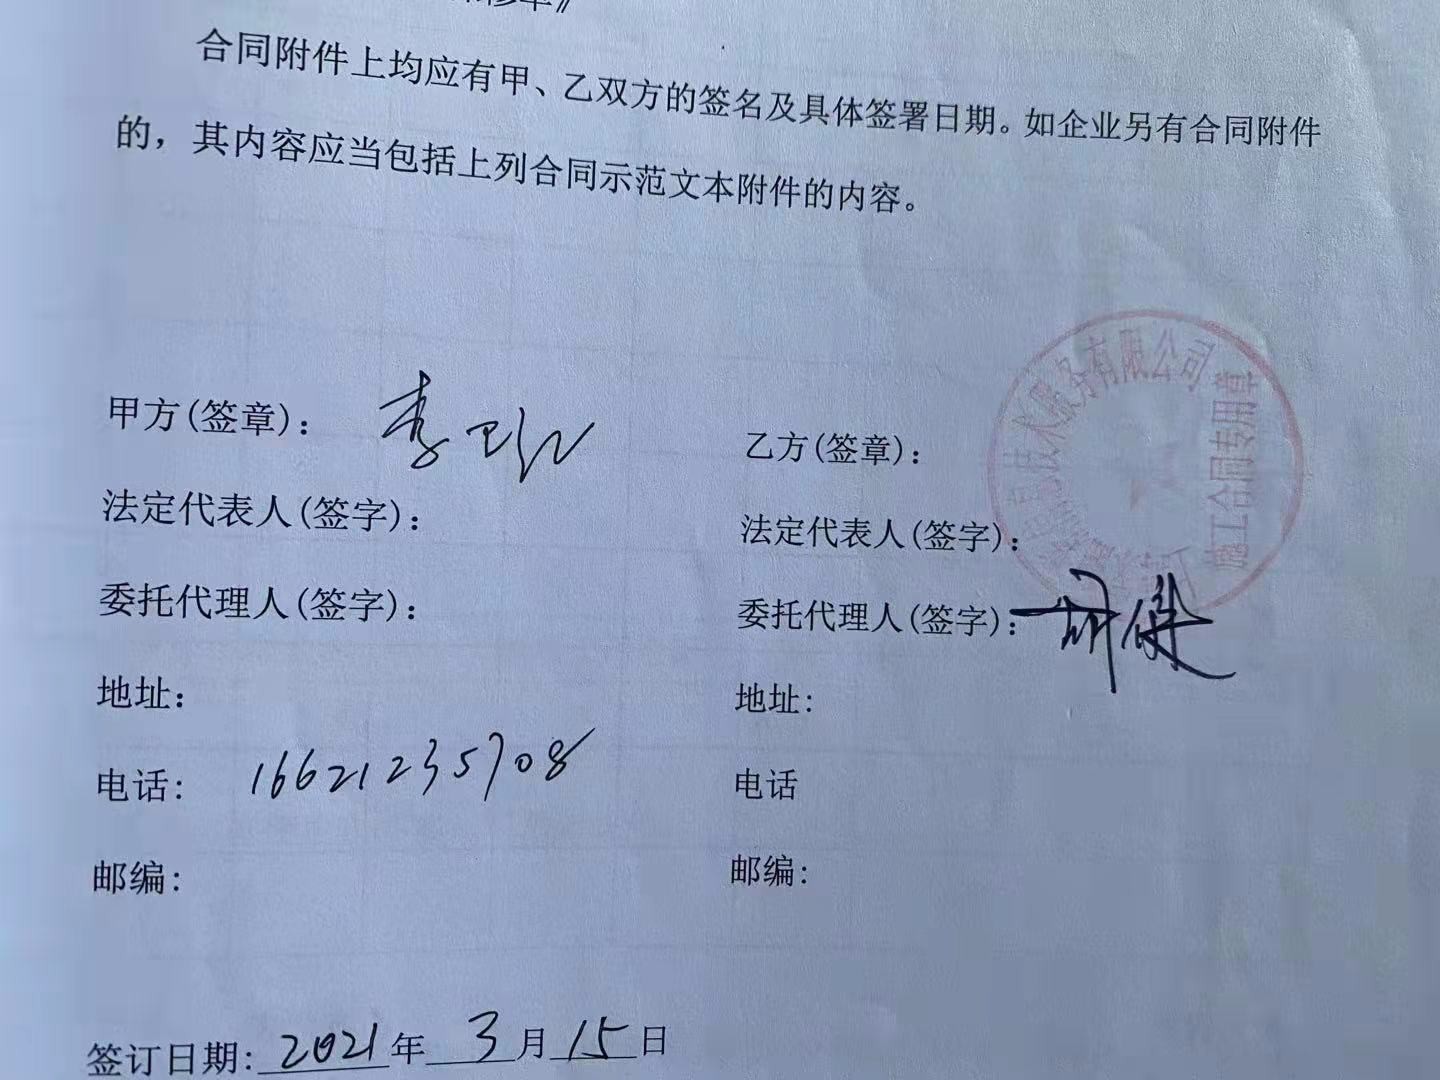 合同附件上均应有甲、乙双方的签名及具体签署日期。如企业另有合同附件
的，其内容应当包括上列合同示范文本附件的内容。
甲方(签章)：
法定代表人(签字)：
委托代理人(签字)：
地址：
电话: 16621235708
邮编:
乙方(签章)：
法定代表人(签字)：
委托代理人(签字)：胡
地址:
电话
邮编:
技术服务有限公司
施工合同专用章
签订日期: 2021年 3月 15日